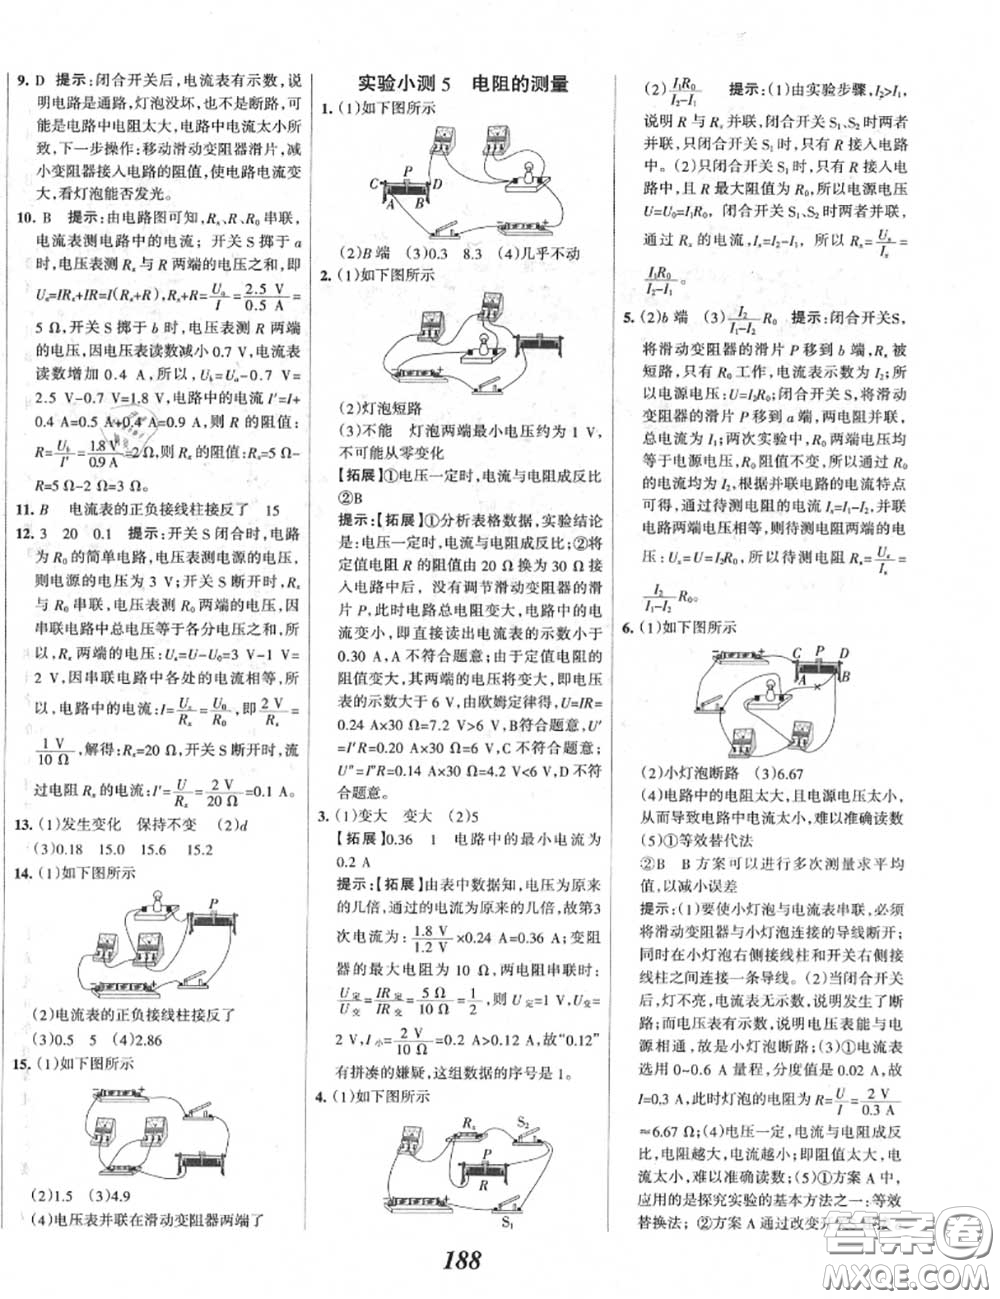 9. D 提示:闭合开关后,电流表有示数,说
明电路是通路,灯泡没坏,也不是断路,可
能电路中电阻太大,电路中电流太小所
致,下一步操作:移动滑动变阻器滑片,减
小变阻器接入电路的阻值,使电路电流变
大,看灯泡能否发光。
10. B 提示:由电路图可知,Rx、R、R0 串联,
电流表测电路中的电流;开关 S 掷于 a
时,电压表测 Rx 与 R 两端的电压之和,即
Ua=IRx+IR=I(Rx+R),Rx+R=Ua/I=2.5 V/0.5 A=
5 Ω,开关 S 掷于 b 时,电压表测 R 两端
的电压,因电压表读数减小 0.7 V,电流表
读数增加 0.4 A,所以,Ub=Ua-0.7 V=
2.5 V-0.7 V=1.8 V,电路中的电流 I'=I+
0.4 A=0.5 A+0.4 A=0.9 A,则 R 的阻值:
R=Ub/I'=1.8 V/0.9 A=2 Ω,则 Rx 的阻值:Rx=5 Ω-
R=5 Ω-2 Ω=3 Ω。
11. B 电流表的正负接线柱接反了 15
12. 3 20 0.1 提示:开关 S 闭合时,电路
为 R0 的简单电路,电压表测电源的电压,
则电源的电压为 3 V;开关 S 断开时,Rx
与 R0 串联,电压表测 R0 两端的电压,因
串联电路中总电压等于各分电压之和,所
以,Rx 两端的电压:Ux=U-U0=3 V-1 V=
2 V,因串联电路中各处的电流相等,所
以,电路中的电流:I=Ux/Rx=U0/R0,即2 V/Rx=
1 V/10 Ω,解得:Rx=20 Ω,开关 S 断开时,流
过电阻 Rx 的电流:I'=U/Rx=2 V/20 Ω=0.1 A。
13. (1)发生变化 保持不变 (2)d
(3)0.18 15.0 15.6 15.2
14. (1)如下图所示
P
(2)电流表的正负接线柱接反了
(3)0.5 5 (4)2.86
15. (1)如下图所示
P
(2)1.5 (3)4.9
(4)电压表并联在滑动变阻器两端了
实验小测 5 电阻的测量
1. (1)如下图所示
C P D
A B
(2)B 端 (3)0.3 8.3 (4)几乎不动
2. (1)如下图所示
(2)灯泡短路
(3)不能 灯泡两端最小电压约为 1 V,
不可能从零变化
【拓展】①电压一定时,电流与电阻成反比
②B
提示:【拓展】①分析表格数据,实验结论
是:电压一定时,电流与电阻成反比;②将
定值电阻 R 的阻值由 20 Ω 换为 30 Ω 接
入电路中后,没有调节滑动变阻器的滑
片 P,此时电路总电阻变大,电路中的电
流变小,即直接读出电流表的示数小于
0.30 A,A 不符合题意;由于定值电阻的
阻值变大,其两端的电压将变大,即电压
表的示数大于 6 V,由欧姆定律得,U=IR=
0.24 A×30 Ω=7.2 V>6 V,B符合题意;U'
=I'R=0.20 A×30 Ω=6 V,C 不符合题意;
U"=I"R=0.14 A×30 Ω=4.2 V<6 V,D 不符
合题意。
3. (1)变大 变大 (2)5
【拓展】0.36 1 电路中的最小电流为
0.2 A
提示:【拓展】由表中数据知,电压为原来
的几倍,通过的电流为原来的几倍,故第3
次电流为:1.8 V/1.2 V×0.24 A=0.36 A;变阻
器的最大阻值为 10 Ω,两电阻串联时:
U定/U变=IR定/IR变=5 Ω/10 Ω=1/2,则 U定=1 V,U变=
2 V,I小=2 V/10 Ω=0.2 A>0.12 A,故“0.12”
有拼凑的嫌疑,这组数据的序号是 1。
4. (1)如下图所示
Rx S2
P
R
S1
(2)I1R0/(I2-I1) 提示:(1)由实验步骤,I2>I1,
说明 R 与 Rx 并联,闭合开关 S1、S2 时两者
并联,只闭合开关 S1 时,只有 R 接入电路
中。(2)只闭合开关 S1 时,只有 R 接入电
路中,且 R 最大阻值为 R0,所以电源电压
U=U0=I1R0,闭合开关 S1、S2 时两者并联,
通过 Rx 的电流,Ix=I2-I1,所以 Rx=Ux/Ix=
I1R0/(I2-I1)。
5. (2)b 端 (3)I2/(I1-I2) R0 提示:闭合开关S,
将滑动变阻器的滑片 P 移到 b 端,Rx 被
短路,只有 R0 工作,电流表示数为 I2;所
以电源电压:U=I2R0;闭合开关,将滑动
变阻器的滑片 P 移到 a 端,两电阻并联,
总电流为 I1;两次实验中,灯泡两端电压均
等于电源电压,且电阻不变,所以通过 R0
的电流均为 I2,根据并联电路的电流特点
可得,通过待测电阻的电流 Ix=I1-I2,并联
电路两端电压相等,则待测电阻两端的电
压:Ux=U=I2R0,所以待测电阻 Rx=Ux/Ix=
I2/(I1-I2) R0。
6. (1)如下图所示
C P D
A B
(2)小灯泡断路 (3)6.67
(4)电路中的电阻太大,且电源电压太小,
从而导致电路中电流太小,难以准确读数
(5)①等效替代法
②B B 方案可以进行多次测量求平均
值,以减小误差
提示:(1)要使小灯泡与电流表串联,必须
将滑动变阻器与小灯泡连接的导线断开;
同时在小灯泡右侧接线柱和开关右侧接
线柱之间连接一条导线。(2)当闭合开关
后,灯不亮,电流表无示数,说明发生了断
路;而电压表有示数,说明电压表能与电
源相通,故是小灯泡断路;(3)①电流表
选用 0~0.6 A 量程,分度值为 0.02 A,故
I=0.3 A,此时灯泡的电阻为 R=U/I=2 V/0.3 A
≈6.67 Ω;(4)电压一定,电流与电阻成反
比,电阻越大,电流越小;即串联电阻太大,
电流太小,难以准确读数;(5)①方案 A 中
应用的是探究实验的基本方法之一:等效
替换法;②方案 A 通过改变
188
答案圈
MXQE.COM